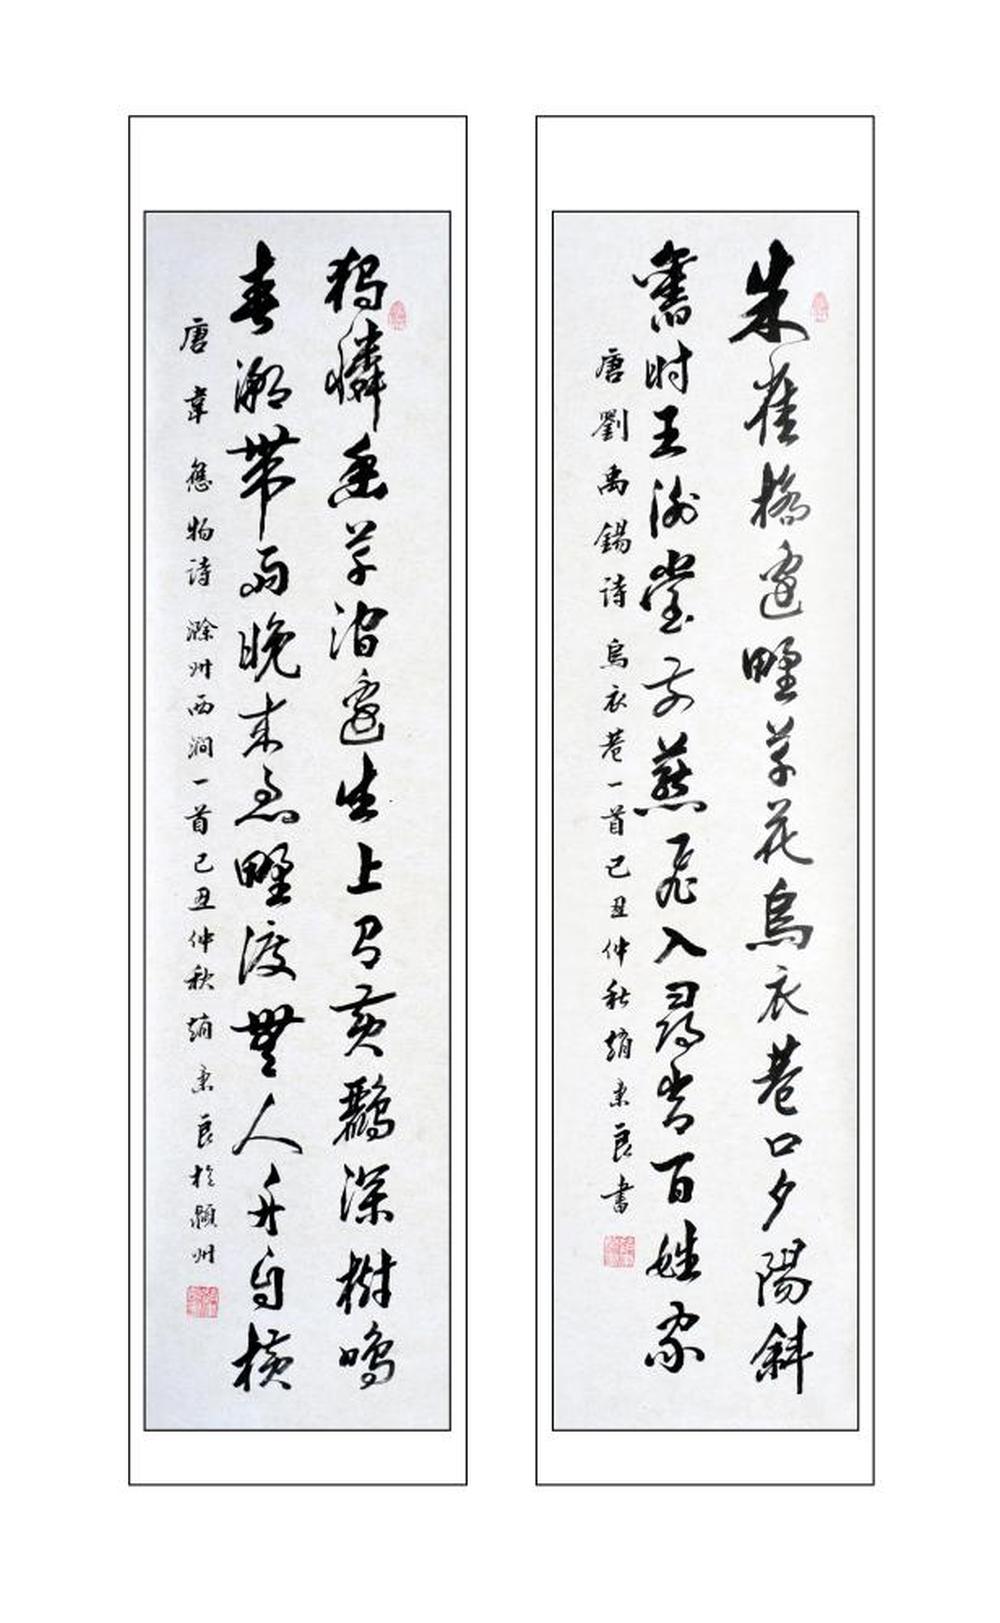 朱雀橋邊野草花烏衣巷口夕陽斜
舊时王謝堂前燕飛入尋常百姓家
唐劉禹錫詩烏衣巷一首己丑仲秋趙秉良書
獨憐幽草澗邊生上有黃鸝深樹鳴
春潮帶雨晚来急野渡無人舟自橫
唐韋應物詩滁州西澗一首己丑仲秋趙秉良於潁州